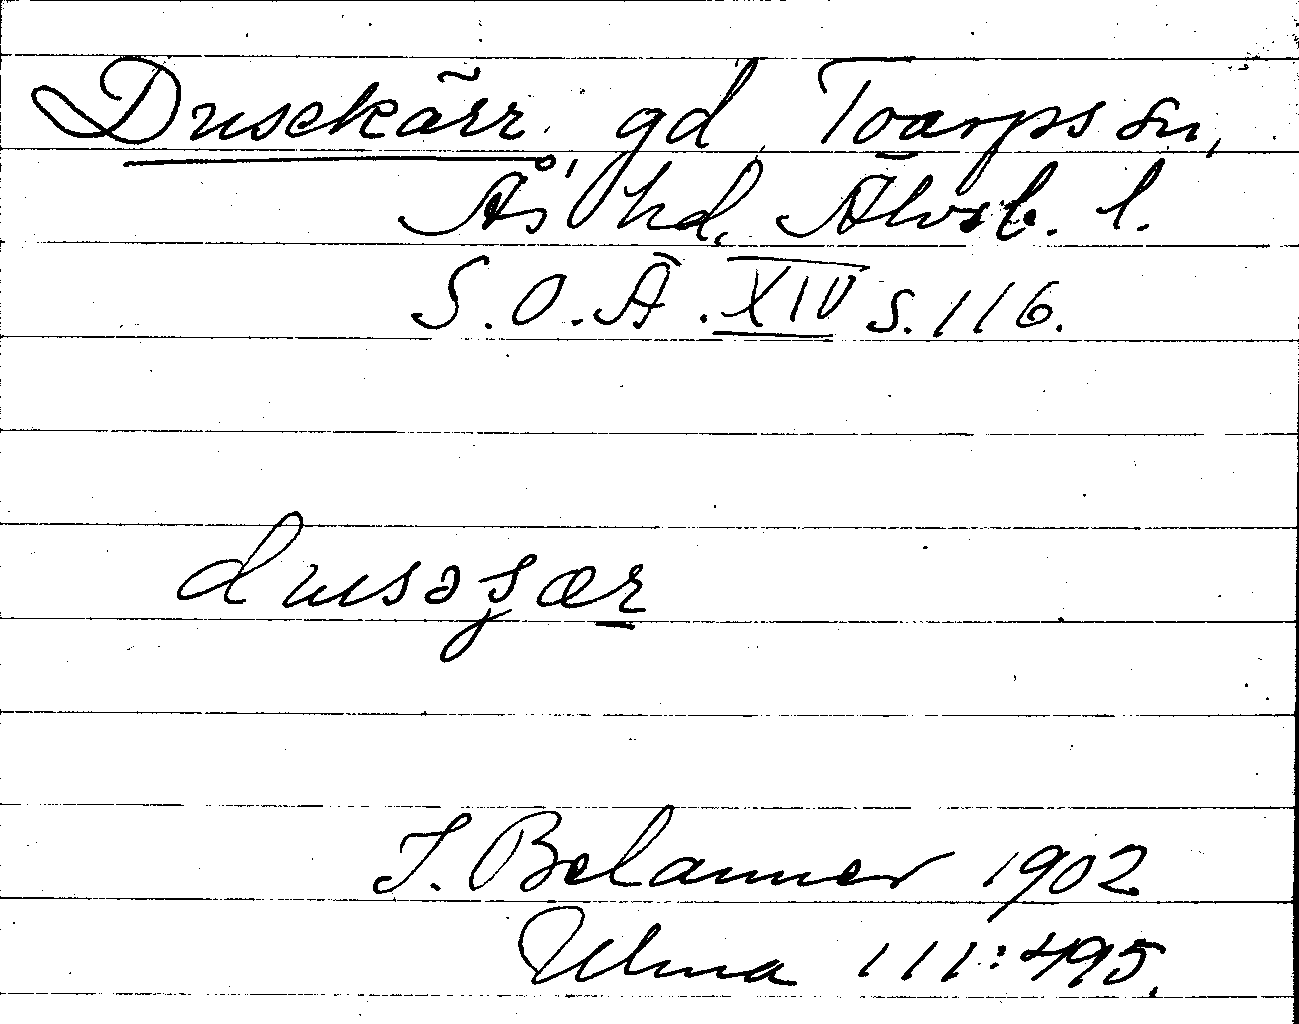 Dusekärr gd Toarps sn,
Ås hd, Älvsb. l.
S.O.Ä. XIV s. 116.
dusəʂær
J. Belanner 1902
Ulma 111:495.